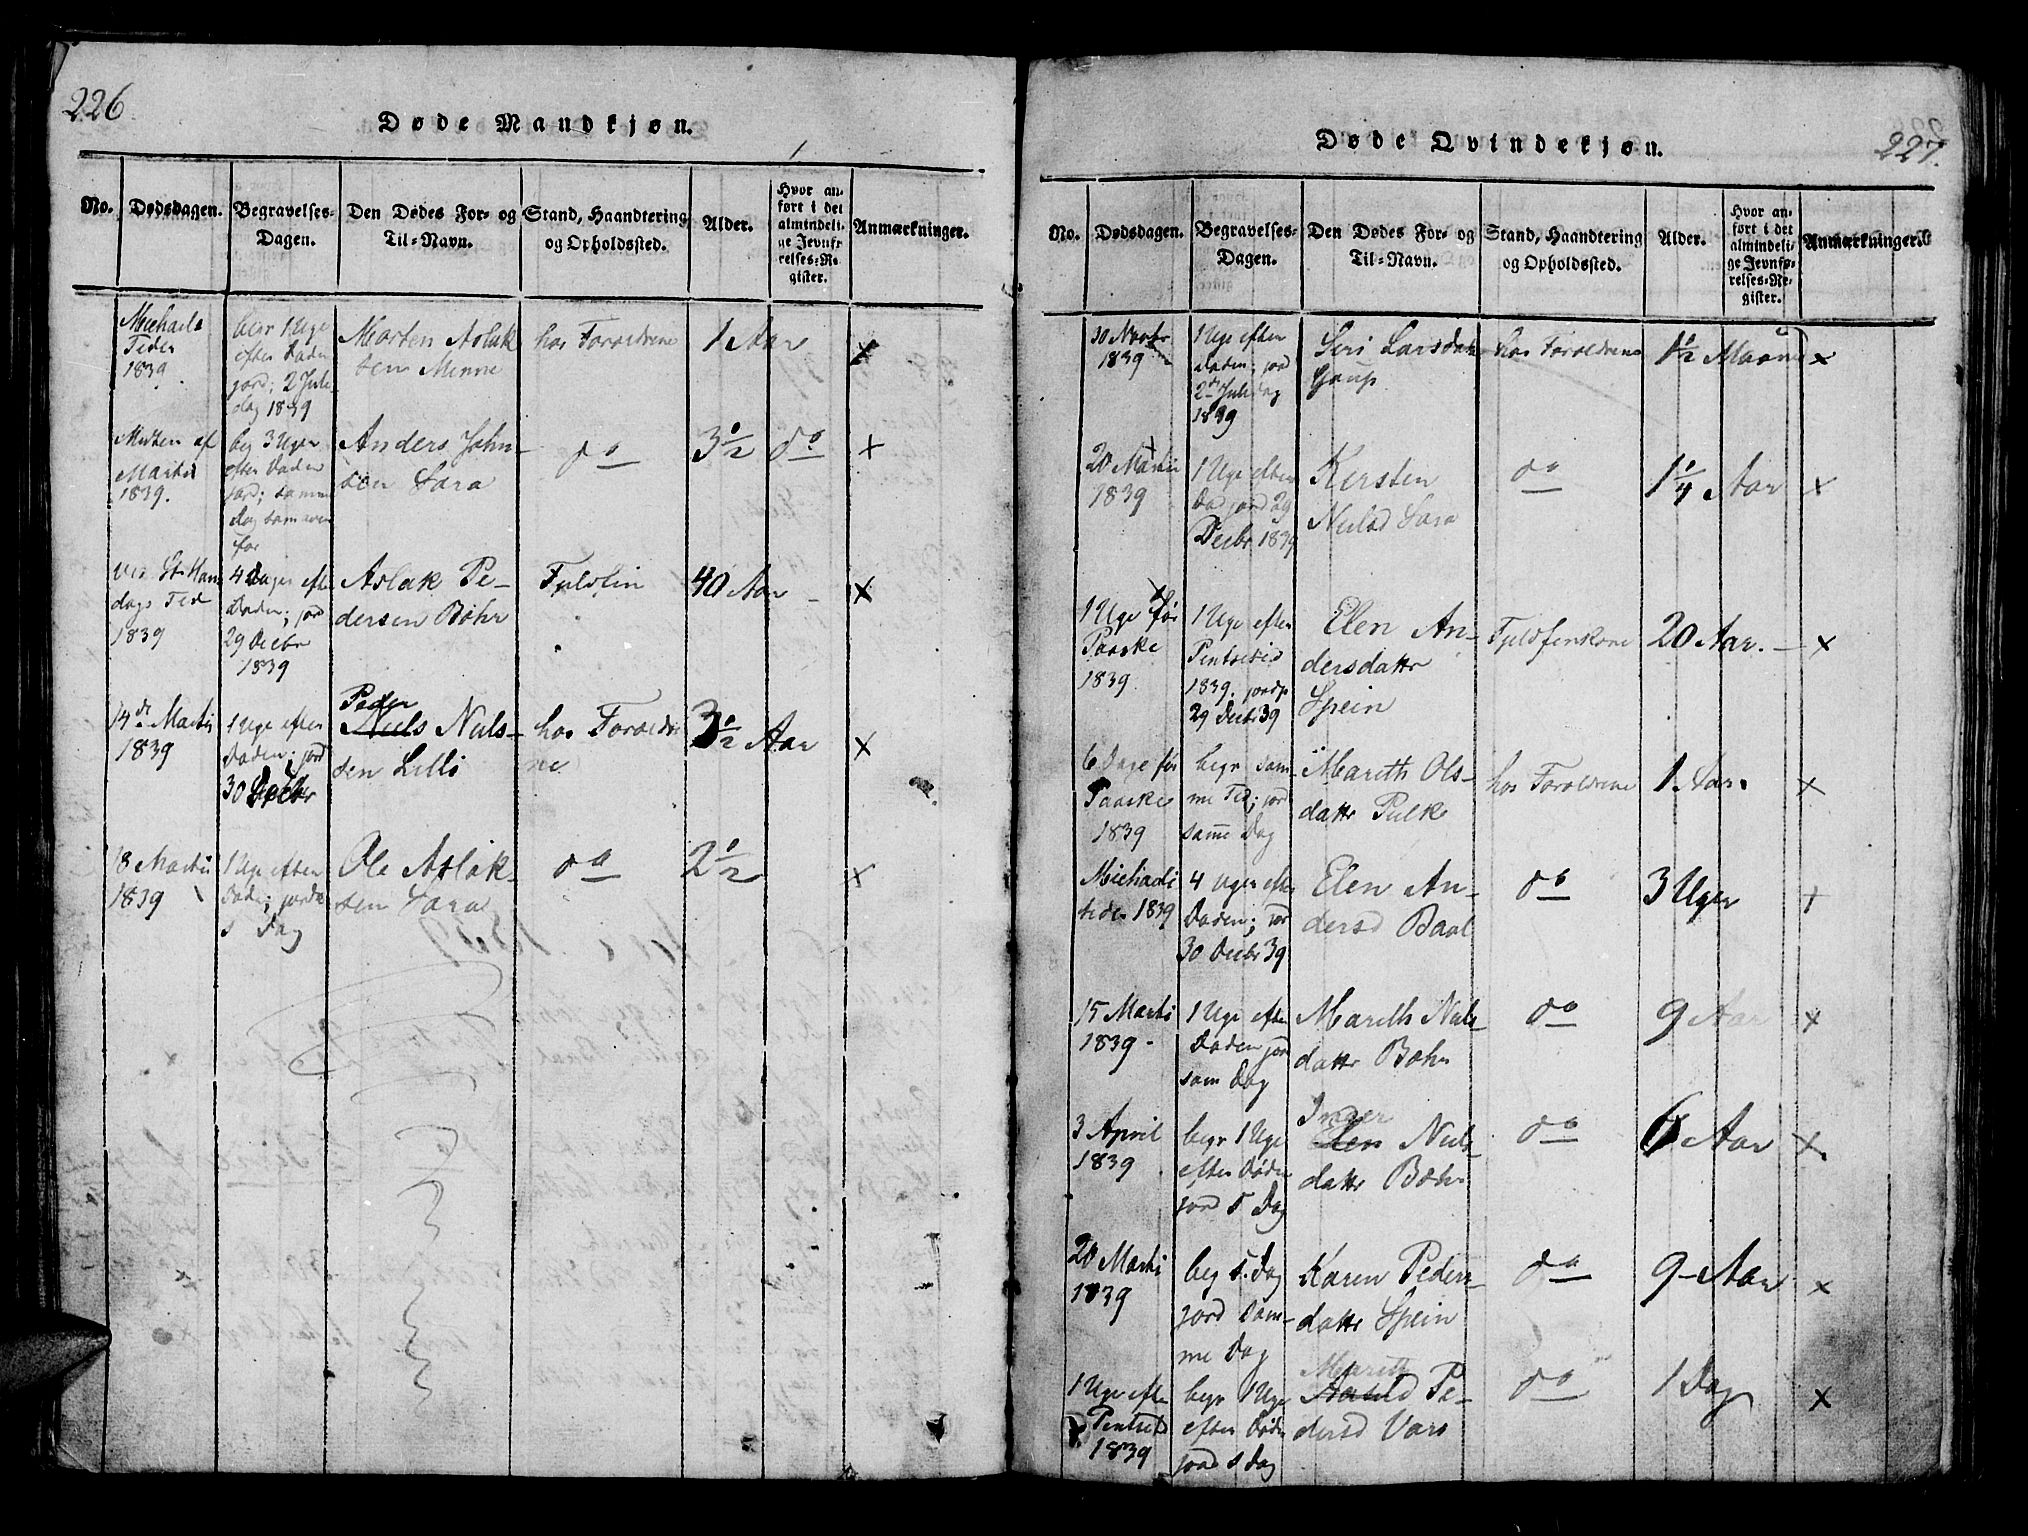 226
Døde Mandkjøn.
No.
Dødsdagen.
Begravelses-
Dagen.
Den Dødes For- og
Til-Navn.
Stand, Haandtering
og Opholdssted.
Alder.
Hvor an-
ført i det
almindeli-
ge Jevnfø-
relses-Re-
gister.
Anmærkninger.
Michaels
Tider
1839
begr 1 Uge
efter Døden
jord; 2 Jule
dag 1839
Morten Aslak
sen Menne
hos Forældrene
1 Aar
x
Midten af
Martii
1839.
beg 3 Uger
efter Døden
jord; samme
Dag som oven
for
Anders John-
sen Sara
do
3 1/2
do
x
ved St Han
dags Tid
1839
4 Dager efter
Døden; jord
29 Decbr
1839
Aslak Pe-
dersen Bæhr
Fjeldfin
40 Aar
x
14de Martii
1839
1 Uge efter
Døden; jord
30 Decbr
Peder
Niels Niels-
sen Lilli
hos Forældre
ne
3 1/2 Aar
x
18 Martii
1839
1 Uge efter
Døde; jorde
s Dag
Ole Aslak-
sen Sara
do
2 1/2
x
227.
Døde Qvindekjøn.
No.
Dødsdagen.
Begravelses-
Dagen.
Den Dødes For- og
Til-Navn.
Stand, Haandtering
og Opholdssted.
Alder.
Hvor an-
ført i det
almindeli-
ge Jevnfø-
relses-Re-
gister.
Anmærkninger.
30 Novbr
1839
1 Uge efter
Døden; jord
2d Juledag
1839
Siri Larsdatr
Gaup
hos Forældrene
1 1/2 Maaned
x
20 Martii
1839
1 Uge efter
Død jord 29
Decbr 1839
Kersten
Nielsd Sara
do
1 1/4 Aar
x
1 Uge før
Paaske
1839
1 Uge efter
Pintsetid
1839. jordf
29 Decbr 39
Elen An-
dersdattr
Spein
Fjeldfinkone
20 Aar.
x
6 Dage før
Paaske
1839
begr sam-
me Tid; jord
samme Dag
Mareth Ols-
dattr Pulk
hos Forældrene
1 Aar.
x
Michaeli
tider 1839
4 Uger efter
Døden; jord
30 Decbr 39
Elen An-
dersd Baal
do
3 Uger
x
15 Martii
1839
1 Uge efter
Døden jord
sam Dag
Mareth Niels-
dattr Bæhr
do
9 Aar
x
3 April
1839
begr 1 Uge
efter Døden
jord s Dag
Inger
Elen Niels-
dattr Bæhr
do
6 Aar
x
20 Martii
1839
beg s. Dag
jord sam-
me Dag
Karen Peders-
dattr Spein
do
9 Aar
x
1 Uge efter
Pintsetid
1839
begr 1 Uge
efter Døde
jord s Dag
Mareth
Pe-
dersd Vars
do
1 Dag
x